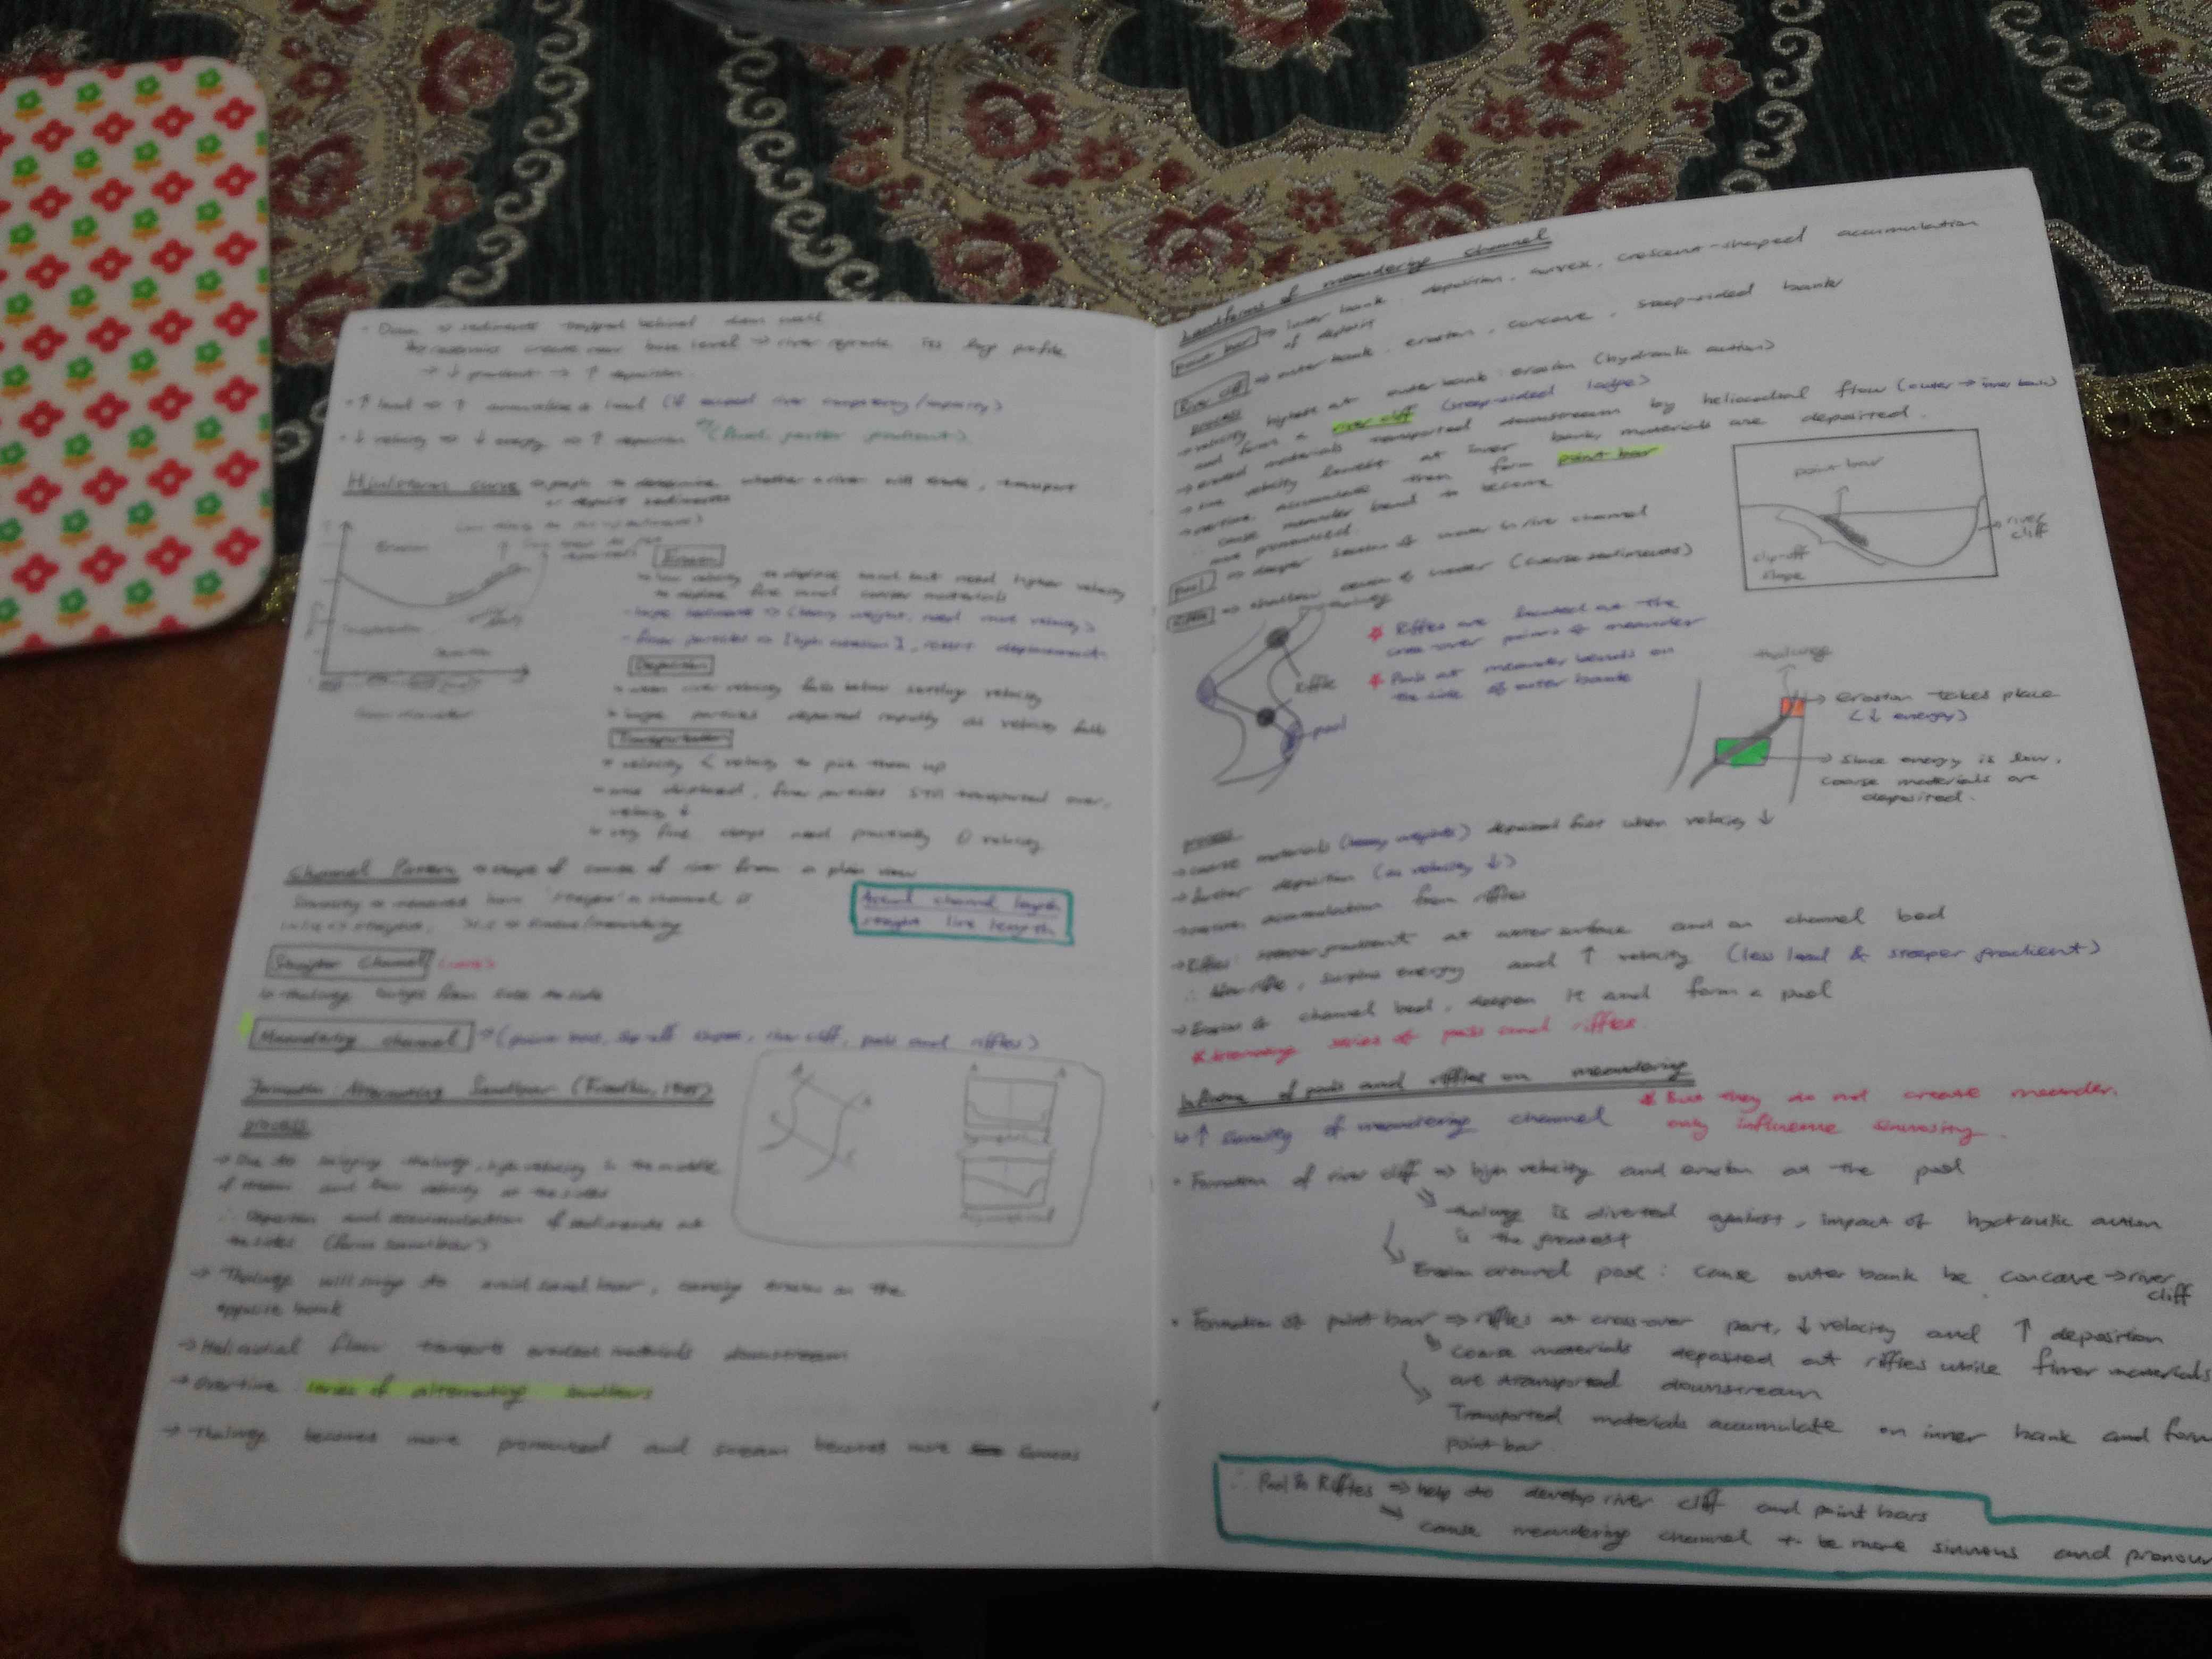 • Dam → sediments trapped behind dam wall
reservoirs create new base level → river regrade its long profile
→ ↓ gradient → ↑ deposition
• ↑ load → ↑ accumulation of load (if exceed river competency/capacity)
• ↓ velocity → ↓ energy → ↑ deposition
Hjulstrom curve → graph to determine whether a river will erode, transport
or deposit sediments
Erosion
Transportation
Deposition
Grain diameter
Erosion
→ low velocity to displace sand but need higher velocity
to displace fine and coarser materials
- large sediments → (heavy weight, need more velocity)
- finer particles → [high cohesion], resist displacement
Deposition
→ when river velocity falls below settling velocity
→ large particles deposited rapidly as velocity falls
Transportation
→ velocity < velocity to pick them up
→ once displaced, finer particles still transported over,
velocity ↓
→ very fine clays need practically 0 velocity
Channel Pattern → shape of course of river from a plan view
Sinuosity → measures how 'straight' a channel is
Actual channel length
straight line length
Straight Channel
↳ thalweg swings from side to side
Meandering channel → (point bar, slip-off slopes, river cliff, pools and riffles)
Formation: Alternating Sandbar
process
→ Due to swinging thalweg, high velocity in the middle
of stream and low velocity at the sides
∴ Deposition and accumulation of sediments at
the sides (form sandbar)
→ Thalweg will swing to avoid sand bar, causing erosion on the
opposite bank
→ Helicoidal flow transports eroded materials downstream
→ Overtime series of alternating sandbars
→ Thalweg becomes more pronounced and stream becomes more sinuous
Landforms of meandering channel
point bar → inner bank, deposition, convex, crescent-shaped accumulation
of deposit
River cliff → outer bank, erosion, concave, steep-sided banks
process
→ velocity highest at outer bank: erosion (hydraulic action)
and form a river cliff (steep-sided ledge)
→ eroded materials transported downstream by helicoidal flow (outer → inner bank)
→ since velocity lowest at inner bank, materials are deposited.
→ overtime accumulate then form point bar
∴ cause meander bend to become
more pronounced
point bar
slip-off
slope
river
cliff
Pool → deeper section of water in river channel
Riffle → shallow section of water (coarse sediments)
thalweg
riffle
pool
* Riffles are located at the
cross-over points of meander
* Pools at meander bends on
the side of outer bank
thalweg
→ erosion takes place
(↓ energy)
→ Since energy is low,
coarse materials are
deposited.
process
→ coarse materials (heavy weights) deposited first when velocity ↓
→ further deposition (as velocity ↓)
→ overtime accumulation form riffles
→ Riffles: steeper gradient at water surface and on channel bed
∴ riffle, surplus energy and ↑ velocity (less load & steeper gradient)
→ Erosion of channel bed, deepen it and form a pool
* Alternating series of pools and riffles
Influence of pools and riffles on meandering
↳ ↑ sinuosity of meandering channel * But they do not create meander.
only influence sinuosity.
• Formation of river cliff ⇒ high velocity and erosion at the pool
↘ thalweg is diverted against, impact of hydraulic action
is the greatest
↳ Erosion around pool: cause outer bank be concave → river
cliff
• Formation of point bar ⇒ riffles at cross-over part, ↓ velocity and ↑ deposition
↘ coarse materials deposited at riffles while finer materials
are transported downstream
↘ Transported materials accumulate on inner bank and form
point bar
∴ Pool & Riffles ⇒ help to develop river cliff and point bars
↘ cause meandering channel to be more sinuous and pronoun